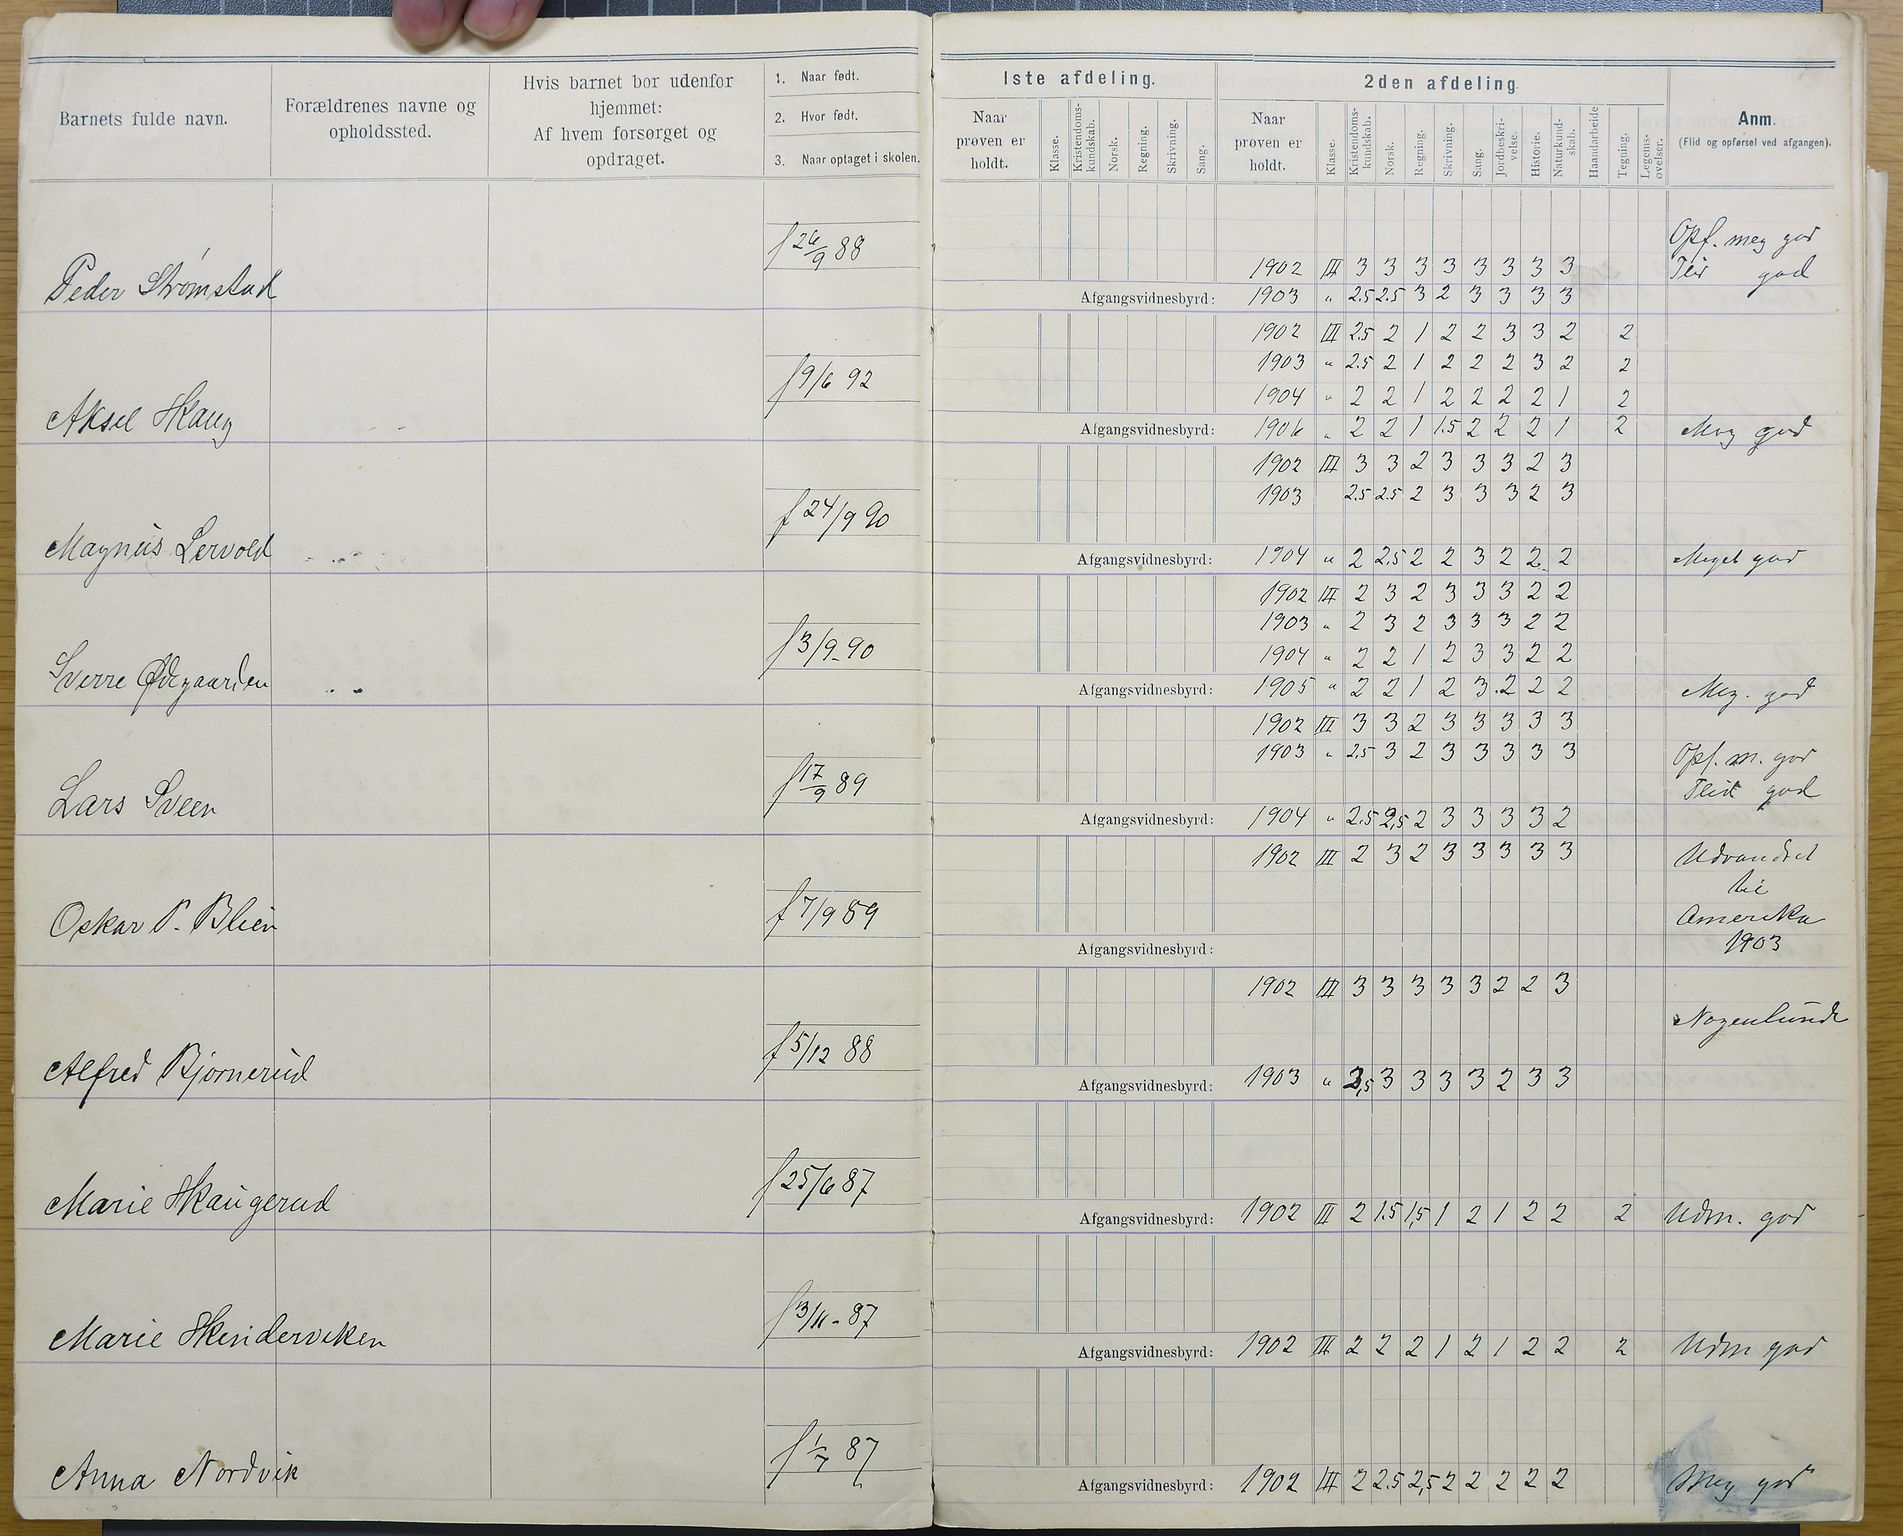 Barnets fulde navn. Forældrenes navne og opholdssted. Hvis barnet bor udenfor hjemmet: Af hvem forsørget og opdraget. 1. Naar født. 2. Hvor født. 3. Naar optaget i skolen.
1ste afdeling. 2den afdeling
Naar prøven er holdt. Klasse. Kristendoms-kundskab. Norsk. Regning. Skrivning. Sang. Naar prøven er holdt. Klasse. Kristendoms-kundskab. Norsk. Regning. Skrivning. Sang. Jordbeskri-velse. Historie. Naturkund-skab. Haandarbeide Tegning. Legems-øvelser. Anm. (Flid og opførsel ved afgangen).
f 26/9 88
Opf. meg god
1902 III 3 3 3 3 3 3 3 3 Flid god
Peder Strømstad
Afgangsvidnesbyrd: 1903 " 2.5 2.5 3 2 3 3 3 3
1902 III 2.5 2 1 2 2 3 3 2 2
f 9/6 92
1903 " 2.5 2 1 2 2 2 3 2 2
1904 " 2 2 1 2 2 2 2 1 2
Aksel Haug
Afgangsvidnesbyrd: 1906 " 2 2 1 1.5 2 2 2 1 2 Meg god
1902 III 3 3 2 3 3 3 2 3
f 24/9 90
1903 2.5 2.5 2 3 3 3 2 3
Magnus Lervold
Afgangsvidnesbyrd: 1904 " 2 2.5 2 2 3 2 2 2 Meget god
1902 III 2 3 2 3 3 3 2 2
f 3/9-90
1903 " 2 3 2 3 3 3 2 2
1904 " 2 2 1 2 3 3 2 2
Sverre Ødegaarden
Afgangsvidnesbyrd: 1905 " 2 2 1 2 3 2 2 2 Meg. god
1902 III 3 3 2 3 3 3 3 3
f 17/9 89
1903 " 2.5 3 2 3 3 3 3 3 Opf. m. god
Flid god
Lars Sveen
Afgangsvidnesbyrd: 1904 " 2.5 2,5 2 3 3 3 3 2
1902 III 2 3 2 3 3 3 3 3 Udvandret
til
f 7/9 89
Amerika
Oskar P. Blien
Afgangsvidnesbyrd: 1903
1902 III 3 3 3 3 3 2 2 3
Nogenlunde
f 5/12 88
Alfred Bjørnerud
Afgangsvidnesbyrd: 1903 " 3 3 3 3 2 3 3
f 25/6 87
Marie Haugerud
Afgangsvidnesbyrd: 1902 III 2 1.5 1,5 1 2 1 2 2 2 Udm. god
f 3/11-87
Marie
Afgangsvidnesbyrd: 1902 III 2 2 2 1 2 1 2 2 2 Udm god
f 1/7 87
Anna Nordvik
Afgangsvidnesbyrd: 1902 III 2 2.5 2,5 2 2 2 2 2 Meg god